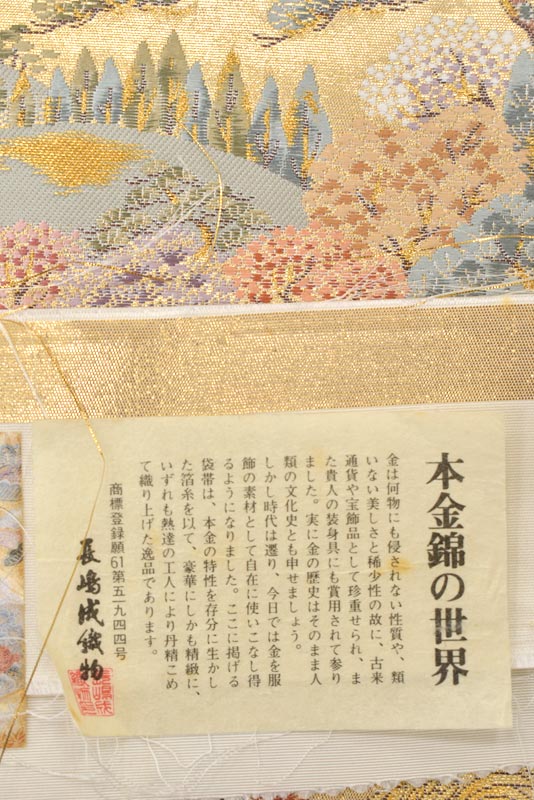 本金錦の世界
金は何物にも侵されない性質や、類
いない美しさと稀少性の故に、古来
通貨や宝飾品として珍重せられ、ま
た貴人の装身具にも賞用されて参り
ました。実に金の歴史はそのまま人
類の文化史とも申せましょう。
しかし時代は遷り、今日では金を服
飾の素材として自在に使いこなし得
るようになりました。ここに掲げる
袋帯は、本金の特性を存分に生かし
た箔糸を以て、豪華にしかも精緻に、
いずれも熱達の工人により丹精こめ
て織り上げた逸品であります。
商標登録願61第五一九四四号
長嶋成織物